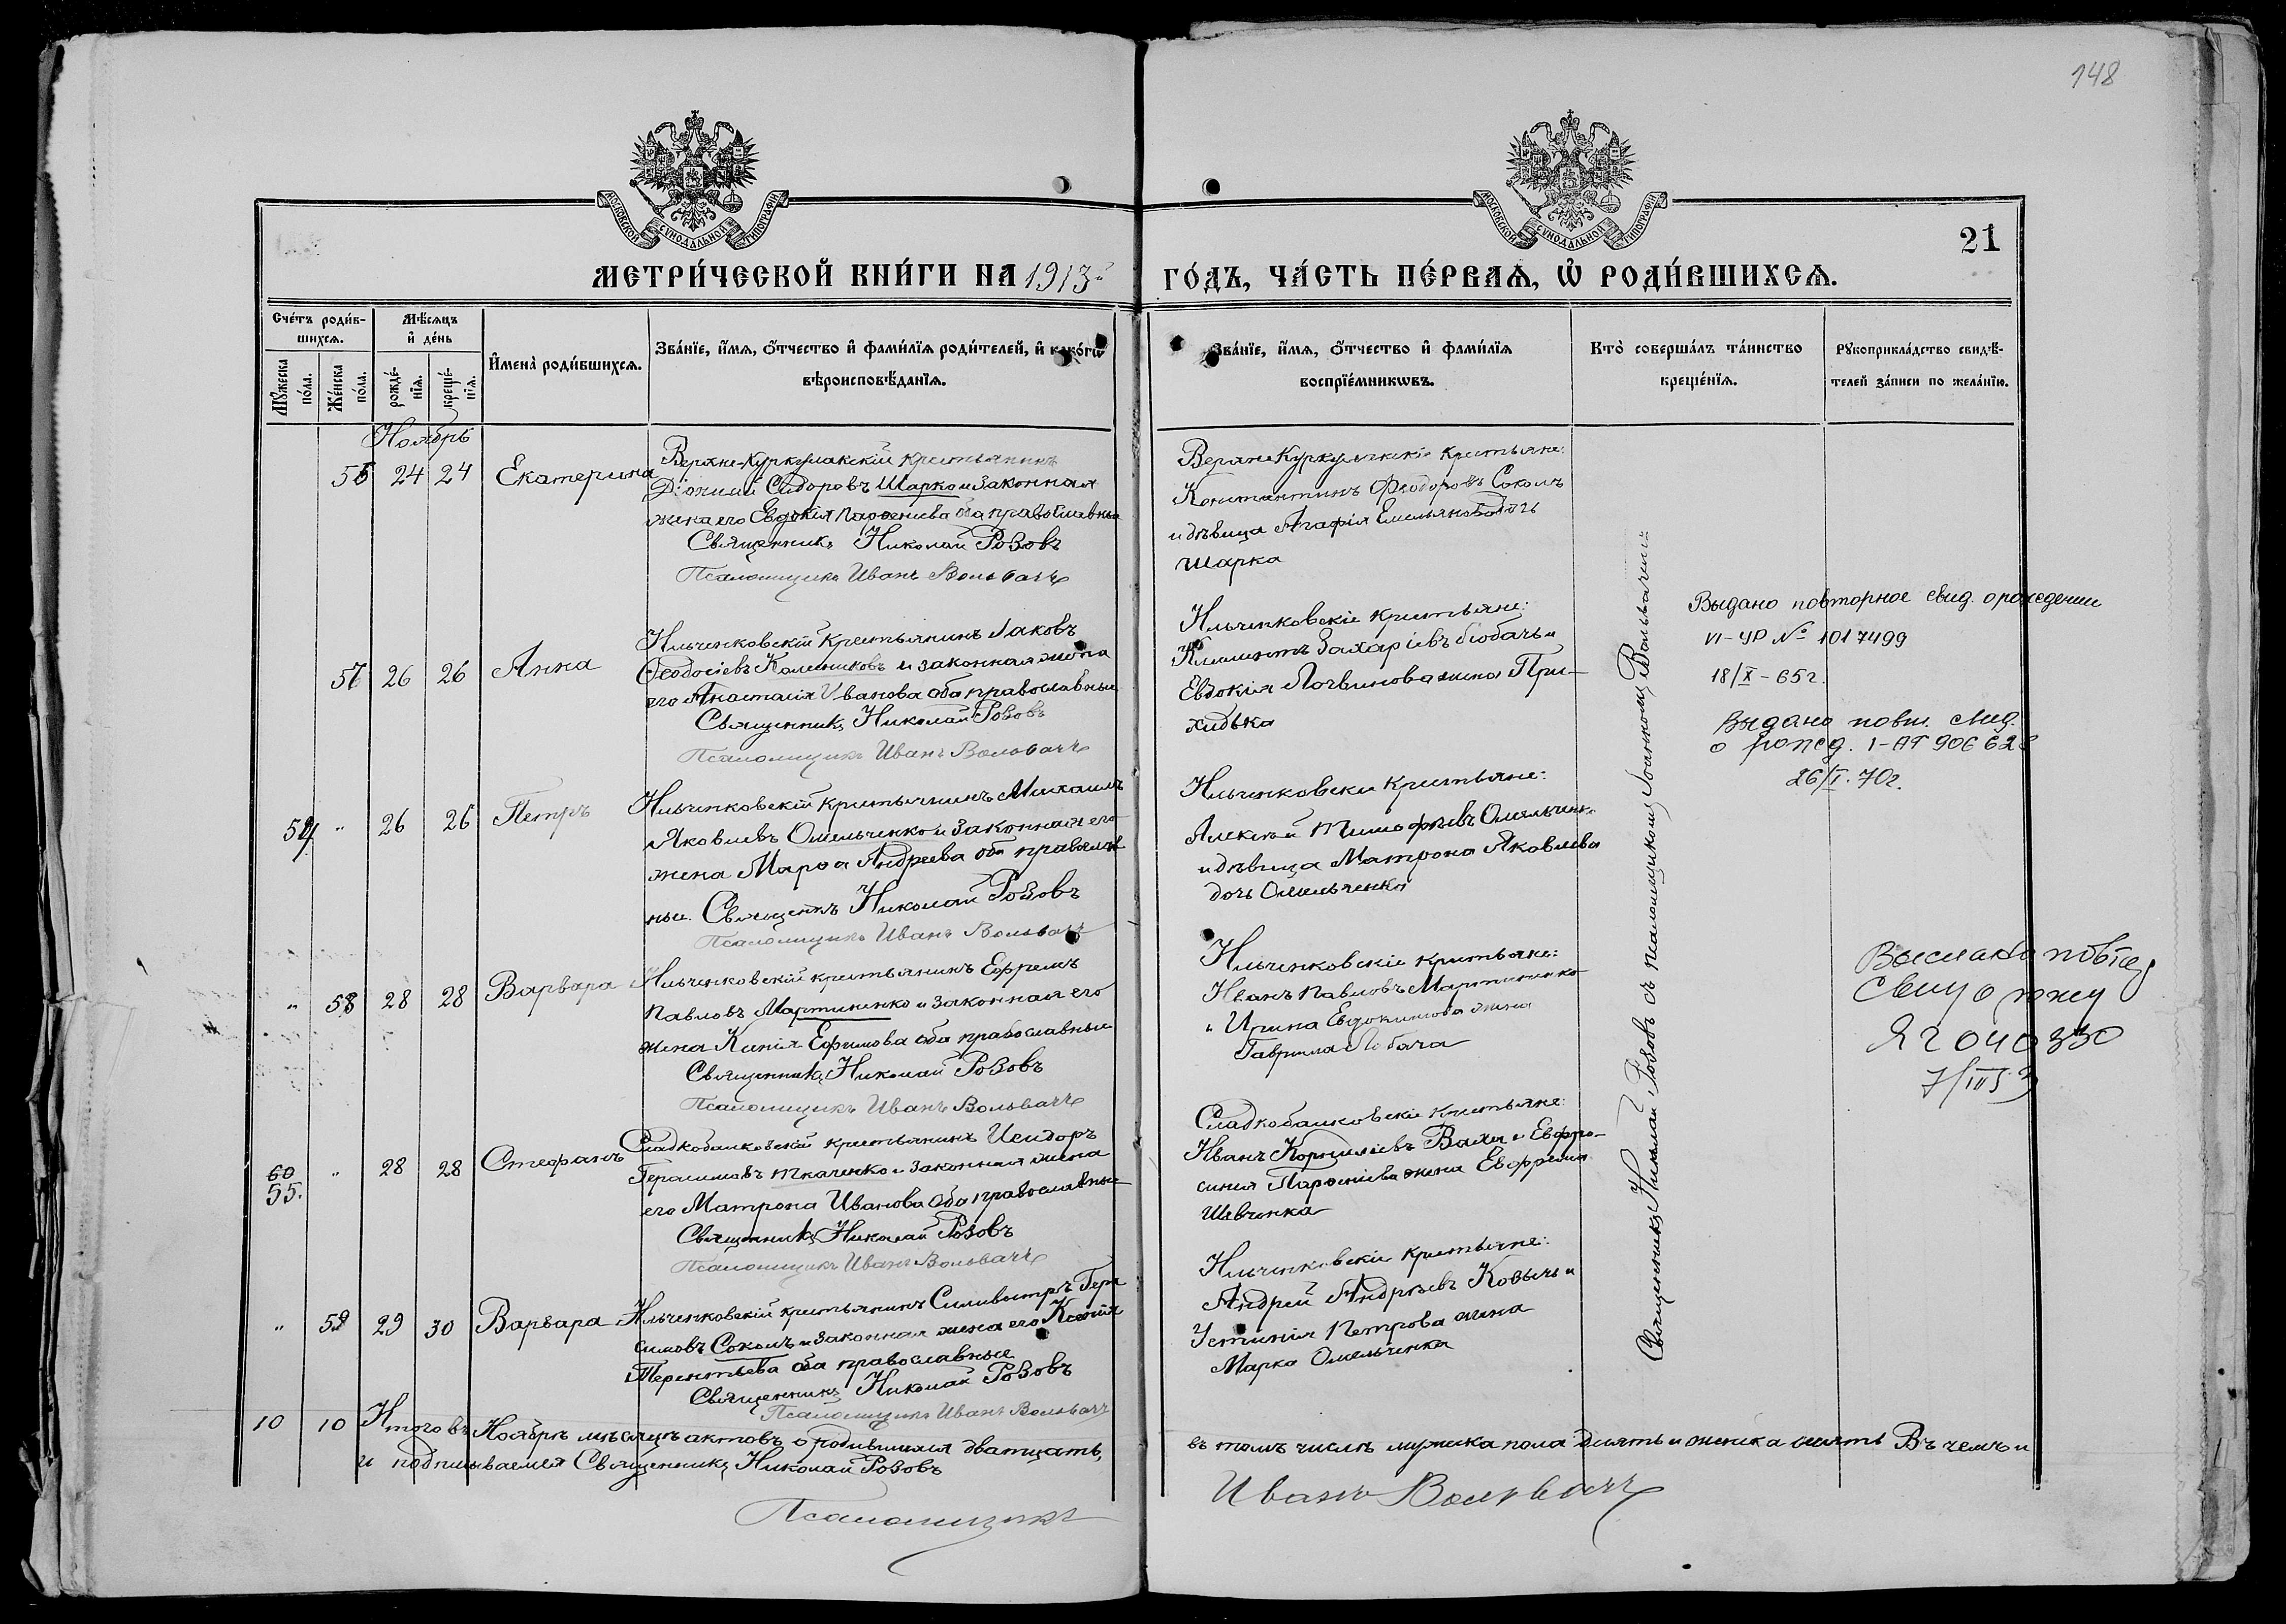 148
МОСКОВСКОЙ СУНОДАЛЬНОЙ ТИПОГРАФІИ
МОСКОВСКОЙ СУНОДАЛЬНОЙ ТИПОГРАФІИ
21
МЕТРИ́ЧЕСКОЙ КНИ́ГИ НА 1913й ГО́ДЪ, ЧА́СТЬ ПЕ́РВАѦ, Ѡ҆ РОДИ́ВШИХСѦ.
Сче́тъ роди́в-
шихсѧ.
Мꙋжеска
по́ла.
Же́нска
по́ла.
Мѣ́сѧцъ
и҆ де́нь
рожде́-
нїѧ.
креще́-
нїѧ.
И҆мена̀ роди́вшихсѧ.
Зва́нїе, и҆́мѧ, ѻ҆́тчество и҆ фами́лїѧ роди́телей, и҆ како́гѡ
вѣроисповѣ́данїѧ.
Зва́нїе, и҆́мѧ, ѻ҆́тчество и҆ фами́лїѧ
воспрїе́мникѡвъ.
Кто̀ соверша́лъ та́инство
креще́нїѧ.
Рꙋкоприкла́дство свидѣ́-
телей за́писи по жела́нїю.
Ноябрь
56 24 24 Екатерина
Верхне-Куркулакскій крестьянинъ
Діонисій Сидоровъ Шарко и законная
жена его Евдокія Парѳеніева оба православные
Священникъ Николай Розовъ
Псаломщикъ Иванъ Вольвачъ
Верхне Куркулакскіе крестьяне:
Константинъ Ѳеодоровъ Соколъ
и дѣвица Агафія Емельянова дочь
Шарка
57 26 26 Анна
Ильченковскій крестьянинъ Іаковъ
Ѳеодосіевъ Колесниковъ и законная жена
его Анастасія Иванова оба православные
Священникъ Николай Розовъ
Псаломщикъ Иванъ Вольвачъ
Ильченковскіе крестьяне:
Климентъ Захаріевъ Лобачъ и
Евдокія Логвинова жена При-
ходька
Выдано повторное свид. о рождении
VI-УР № 1017499
18/X-65г.
Выдано повт. свид.
о рожд. I-АП 90662
26/I.70г.
54 " 26 26 Петръ
Ильченковскій крестьянинъ Михаилъ
Яковлевъ Омельченко и законная его
жена Марѳа Андреева оба православ
ные. Священникъ Николай Розовъ
Псаломщикъ Иванъ Вольвачъ
Ильченковскіе крестьяне:
Алексѣй Тимофѣевъ Омельченко
и дѣвица Матрона Яковлева
дочь Омельченка
" 58 28 28 Варвара
Ильченковскій крестьянинъ Ефремъ
Павловъ Мартиненко и законная его
жена Ксенія Ефимова оба православные
Священникъ Николай Розовъ
Псаломщикъ Иванъ Вольвачъ
Ильченковскіе крестьяне:
Иванъ Павловъ Мартиненко
и Ирина Евдокимова жена
Гавриила Лобача
Выслано
7/III
60
55. " 28 28 Стефанъ
Сладкобалковскій крестьянинъ Исидоръ
Герасимовъ Ткаченко и законная жена
его Матрона Иванова оба православные
Священникъ Николай Розовъ
Псаломщикъ Иванъ Вольвачъ
Сладкобалковскіе крестьяне:
Иванъ Корниліевъ и Евфро-
синія Парѳеніева жена Евфрема
Шевченка
" 59 29 30 Варвара
Ильченковскій крестьянинъ Силивестръ Гера
симовъ Соколъ и законная жена его Ксенія
Терентьева оба православные
Священникъ Николай Розовъ
Псаломщикъ Иванъ Вольвачъ
Ильченковскіе крестьяне:
Андрей Андреевъ и
Устинія Петрова жена
Марка Омельченка
Священникъ Николай Розовъ съ псаломщикомъ Іоанномъ Вольвачемъ
10 10 Итого въ Ноябрѣ мѣсяцѣ актовъ о родившихся двадцать, въ томъ числѣ мужска пола десять и женска десять Въ чемъ и
и подписываемся Священникъ Николай Розовъ
Псаломщикъ Иванъ Вольвачъ